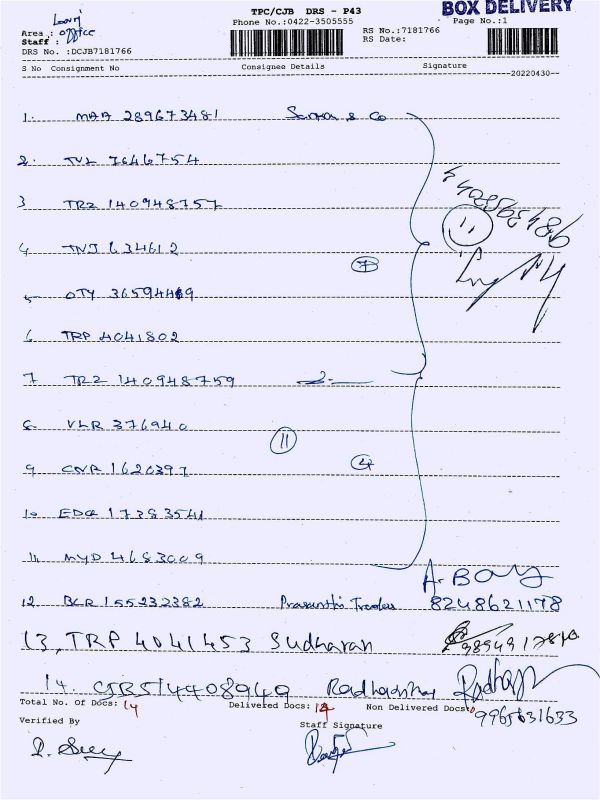 TPC/CJB DRS - P43
BOX DELIVERY
Phone No.:0422-3505555
Page No.:1
Area : office
Staff :
RS No.:7181766
RS Date:
DRS No. :DCJB7181766
S No Consignment No Consignee Details Signature
20220430
1. MAA 289673481 & Co
2. TVL 7646754
3 TRZ 140948757
4 TNJ 634612
7
5 OTY
6 TRP 4041802
7 TRZ 140948759
8. VLR 376940
11
9 CNR 1620397 4
10 EDQ 17383541
11. MYD 4683009
A. Boy
12 BLR 155232382 Prasanthi Traders 8248621178
13, TRP 4041453 Sudharan
14. CJB514408949
Total No. Of Docs: 14 Delivered Docs: 14 Non Delivered Docs:
9965631633
Verified By Staff Signature